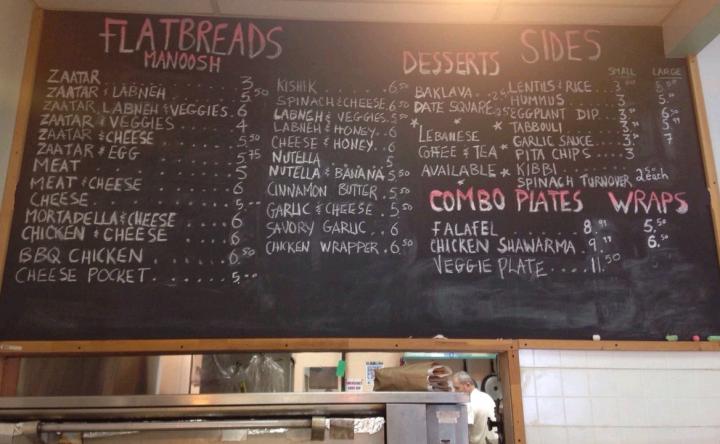 FLATBREADS
MANOOSH
ZAATAR 3
ZAATAR & LABNEH 5.50
ZAATAR LABNEH & VEGGIES 6
ZAATAR & VEGGIES 4
ZAATAR & CHEESE 5.50
ZAATAR & EGG 5.75
MEAT 5
MEAT & CHEESE 6
CHEESE 5
MORTADELLA & CHEESE 6
CHICKEN & CHEESE 6
BBQ CHICKEN 6.50
CHEESE POCKET 5
KISHIK 6.50
SPINACH & CHEESE 6.50
LABNEH & VEGGIES 5.50
LABNEH & HONEY 6
CHEESE & HONEY 6
NUTELLA 5
NUTELLA & BANANA 5.50
CINNAMON BUTTER 5.50
GARLIC & CHEESE 5.50
SAVORY GARLIC 6
CHICKEN WRAPPER 6.50
DESSERTS
BAKLAVA
DATE SQUARE
LEBANESE
COFFEE & TEA
AVAILABLE
SIDES
SMALL LARGE
LENTILS & RICE 3
HUMMUS 3
EGGPLANT DIP 3
TABBOULI 3
GARLIC SAUCE 3 7
PITA CHIPS 3
KIBBI
SPINACH TURNOVER 2 each
COMBO PLATES WRAPS
FALAFEL 8.99 5.50
CHICKEN SHAWARMA 9.99 6.50
VEGGIE PLATE 11.50